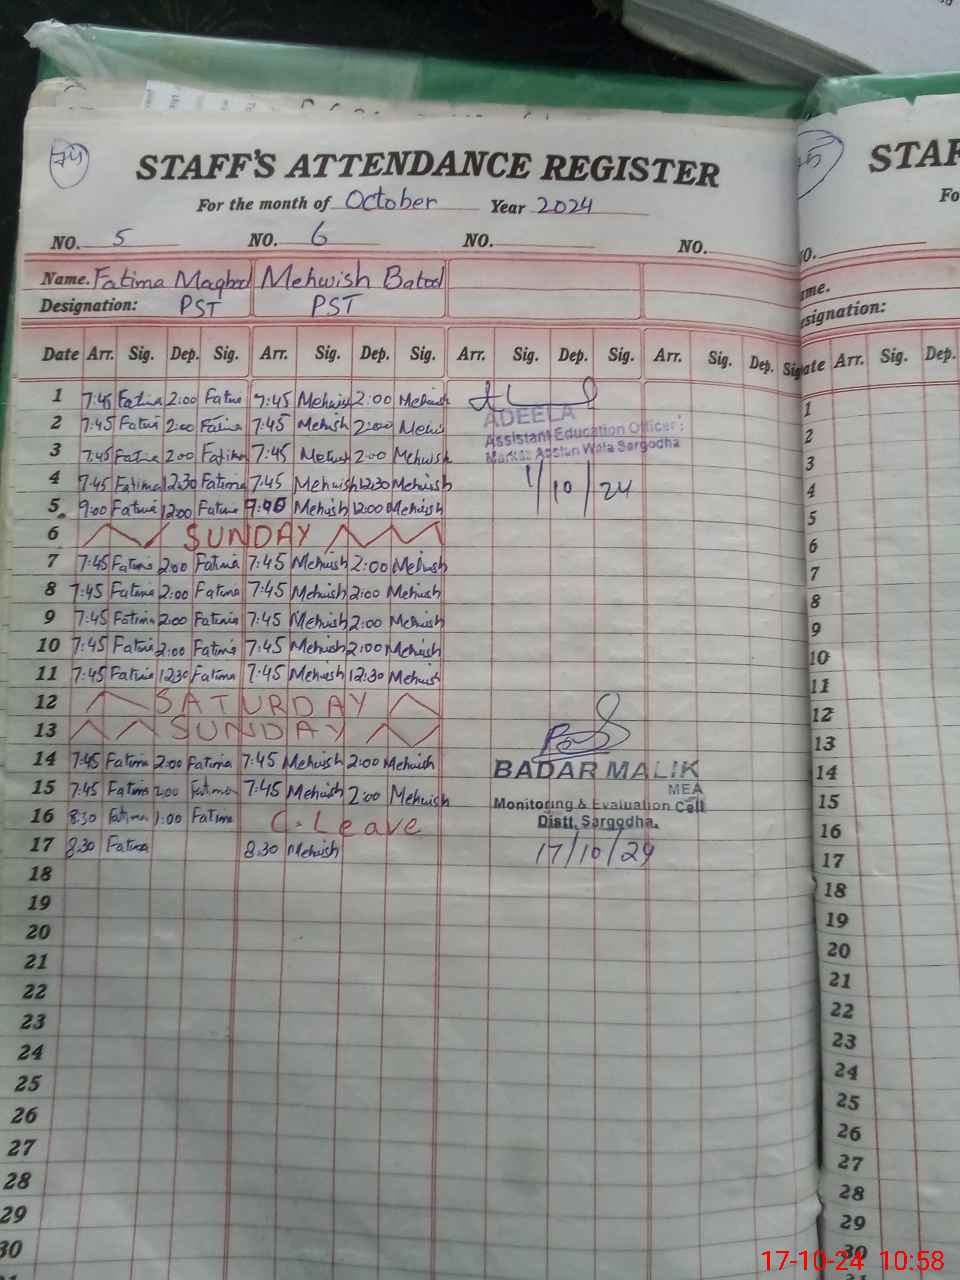 74
STAFF'S ATTENDANCE REGISTER
For the month of October Year 2024
NO. 5 NO. 6 NO. NO.
Name. Fatima Maqbool Mehwish Batool
Designation: PST PST
Date Arr. Sig. Dep. Sig. Arr. Sig. Dep. Sig. Arr. Sig. Dep. Sig. Arr. Sig. Dep. Sig
1 7:45 Fatima 2:00 Fatima 7:45 Mehwish 2:00 Mehwish
2 7:45 Fatima 2:00 Fatima 7:45 Mehwish 2:00
ADEELA
Assistant Education Officer
3 7:45 Fatima 2:00 Fatima 7:45 Mehwish 2:00 Mehwish
Sargodha
4 7:45 Fatima 12:30 Fatima 7:45 Mehwish 12:30 Mehwish
1/10/24
5 9:00 Fatima 12:00 Fatima Mehwish 12:00 Mehwish
6 SUNDAY
7 7:45 Fatima 2:00 Fatima 7:45 Mehwish 2:00 Mehwish
8 7:45 Fatima 2:00 Fatima 7:45 Mehwish 2:00 Mehwish
9 7:45 Fatima 2:00 Fatima 7:45 Mehwish 2:00 Mehwish
10 7:45 Fatima 2:00 Fatima 7:45 Mehwish 2:00 Mehwish
11 7:45 Fatima 12:30 Fatima 7:45 Mehwish 12:30 Mehwish
12 SATURDAY
13 SUNDAY
14 7:45 Fatima 2:00 Fatima 7:45 Mehwish 2:00 Mehwish
BADAR MALIK
MEA
15 7:45 Fatima 2:00 Fatima 7:45 Mehwish 2:00 Mehwish
Monitoring & Evaluation Cell
Distt. Sargodha.
16 8:30 Fatima 1:00 Fatima C. Leave
17 8:30 Fatima 8:30 Mehwish
17/10/24
18
19
20
21
22
23
24
25
26
27
28
29
30
STAF
Fo
O.
ame.
esignation:
ate Arr. Sig. Dep.
1
2
3
4
5
6
7
8
9
10
11
12
13
14
15
16
17
18
19
20
21
22
23
24
25
26
27
28
29
30
17-10-24 10:58